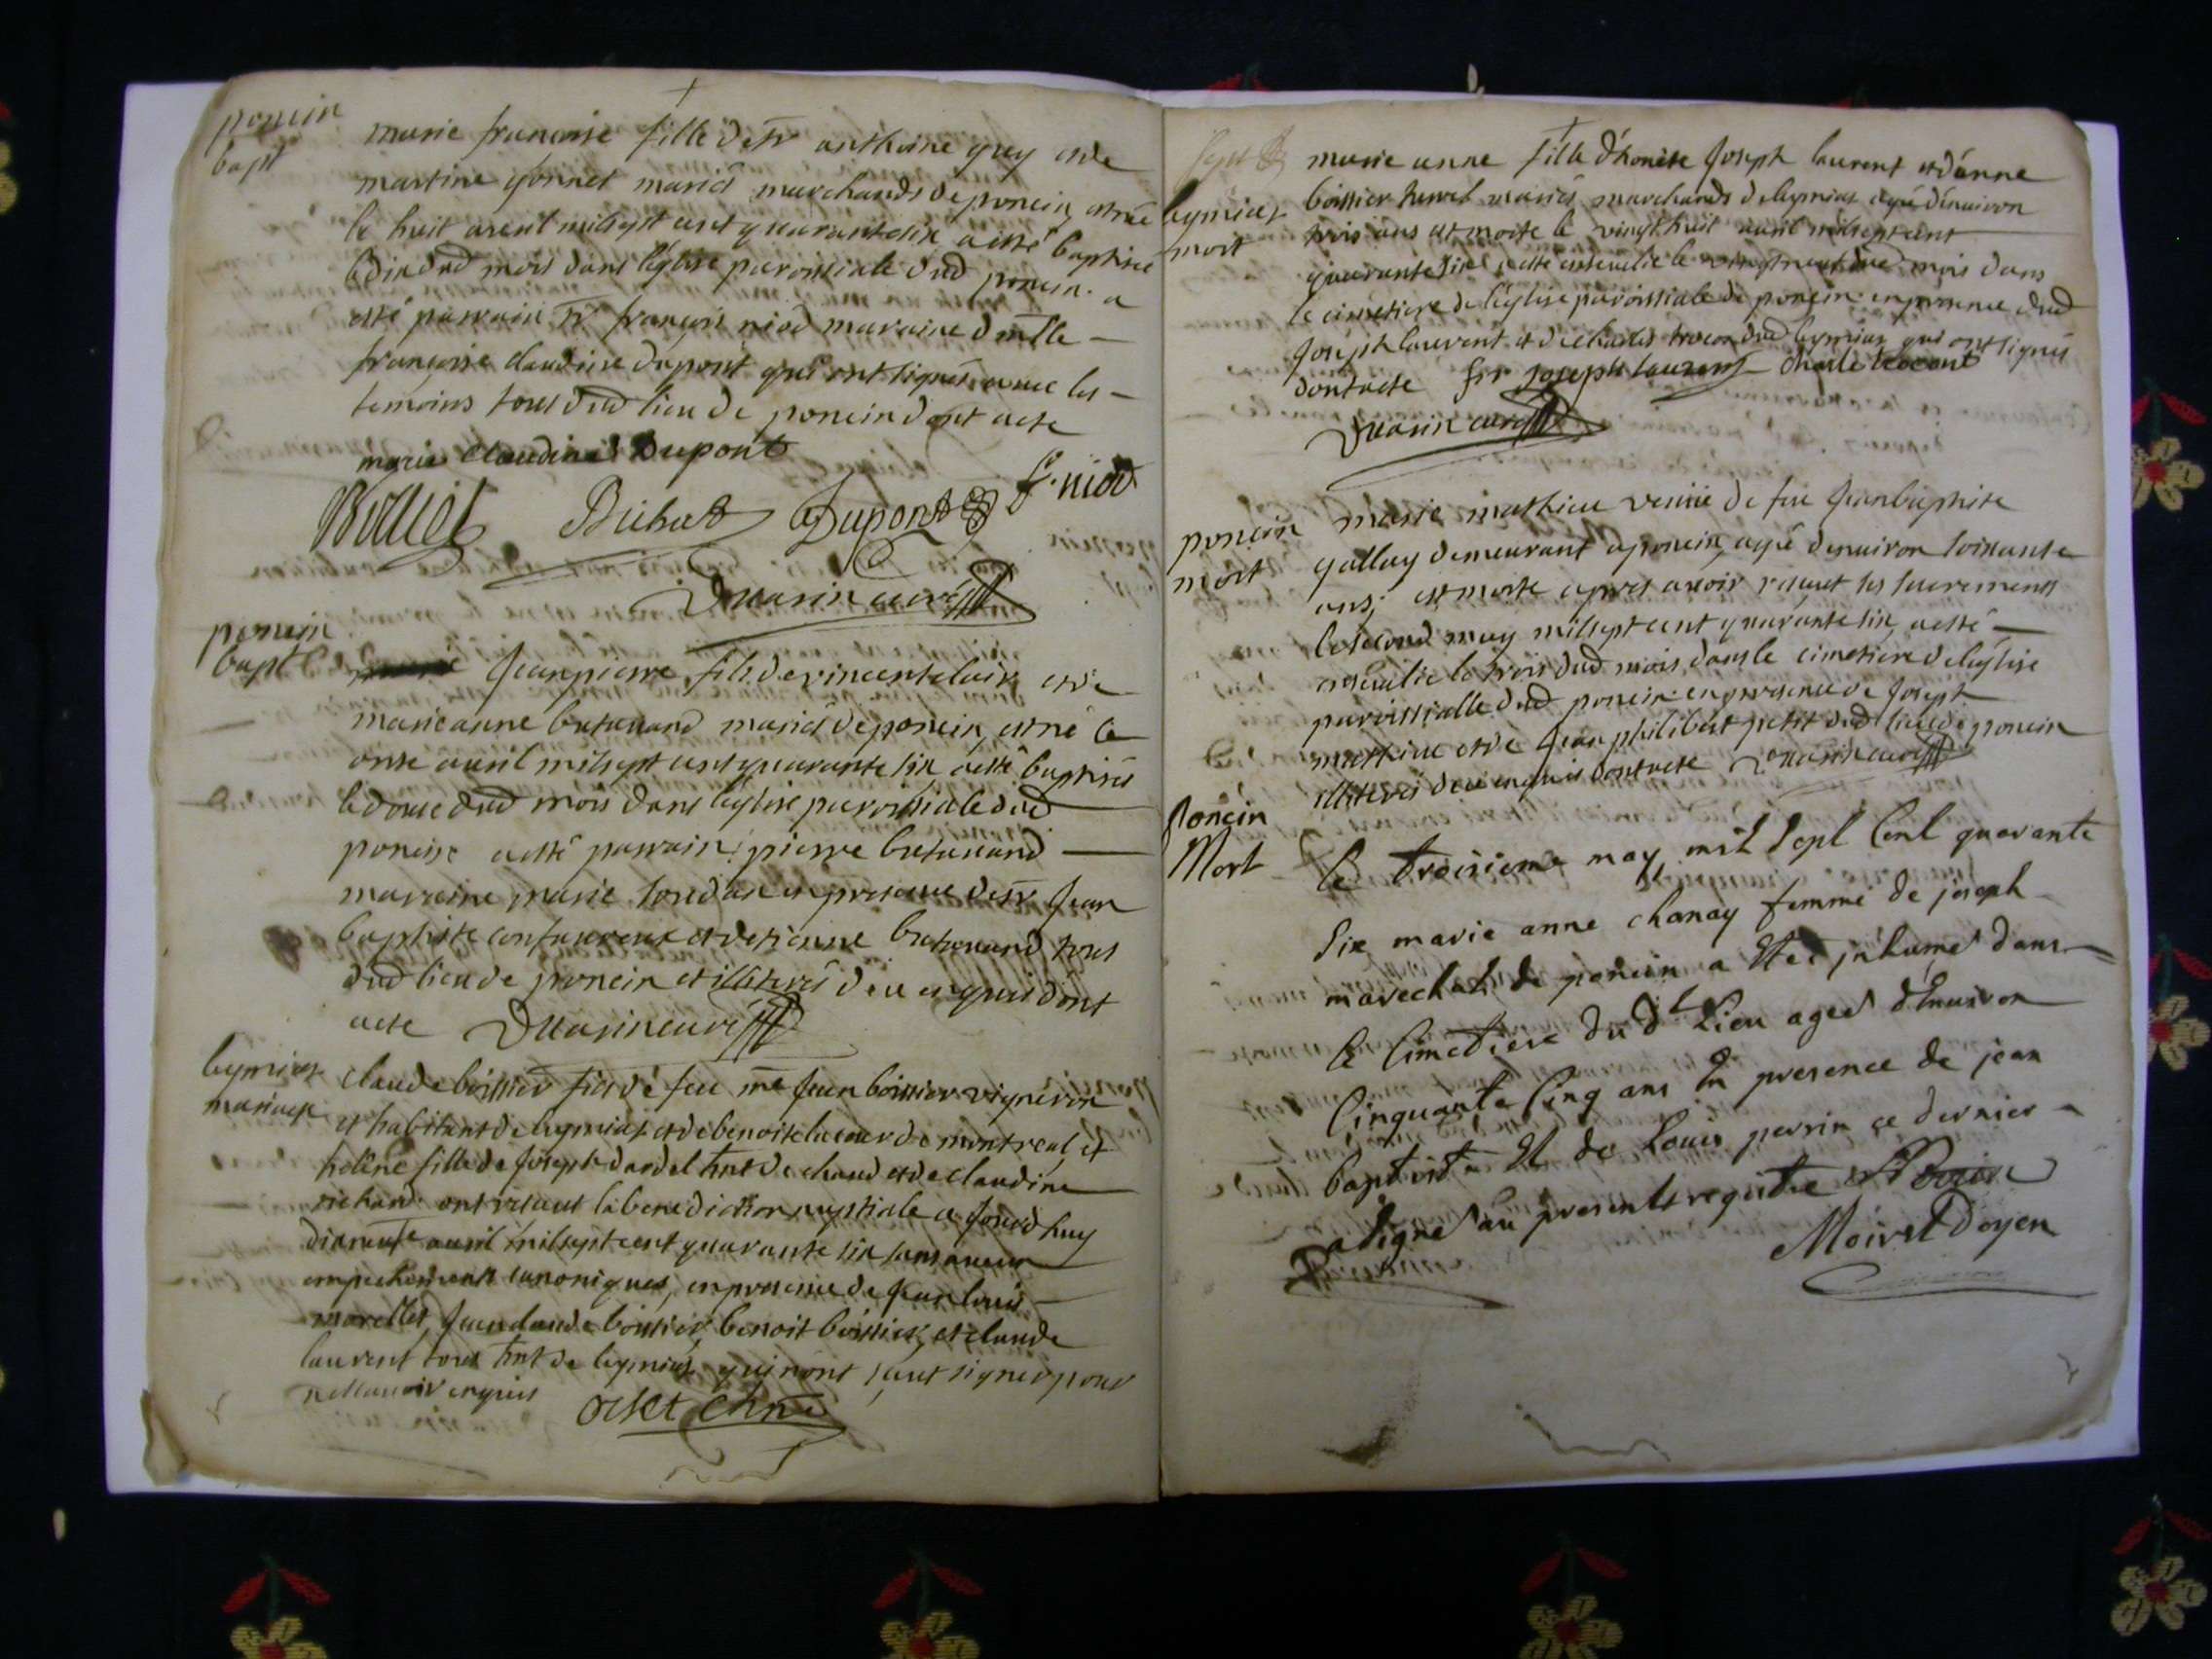 poncin
bapt
marie francoise fille de sr anthoine guy et de
martine gonnet mariés marchands de poncin, est née
le huit avril mil sept cent quarante six a esté baptisée
le dix dud mois dans léglise paroissiale dud poncin. a
esté parrain sr francois niod maraine dmlle
francoise claudine dupont qui ont signés avec les
temoins tous dud lieu de poncin dont acte
marie claudine Dupont
Bichat Dupont f. niod
Duarin curé
poncin
bapt
Jean pierre fils de vincent clair et de
marie anne bretouand mariés de poncin, est né le
onze avril mil sept cent quarante six a esté baptisés
le douze dud mois dans léglise paroissiale dud
poncin a esté parrain pierre bretouand
maraine marie en presence de sr Jean
baptiste et detienne bretouand tous
dud lieu de poncin et illiterés de ce enquis dont
acte Duarin curé
leymiat
mariage
claude boissier fils de feu me Jean boissier vigneron
et habitant de leymiat et de benoite de montreal et
helene fille de Joseph dardel hnt de chaud et de claudine
richard ont reçeut la benediction nuptiale a Jourdhuy
avril mil sept cent quarante six sans aucun
empechements canoniques, en presence de Jean louis
morellet, Jean claude boissier, benoit boissier, et claude
laurent tous hnt de leymiat qui nont sceut signer pour
ne scavoir enquis
leymiat
mort
marie anne fille dhonète Joseph laurent et dánne
boissier mariés marchands de leymiat agé dénuiron
trois ans est morte le vingt huit avril mil sept cent
quarante six a esté ensevelie le vingt neuf dud mois dans
le cimetiere de léglise paroissiale de poncin en presence dud
Joseph laurent et de charles trocon dud leymiat qui ont signés
dont acte Joseph laurent Charle trocont
Duarin curé
poncin
mort
marie mathieu veuve de feu Jean baptiste
gallay demeurant a poncin, agé denuiron soixante
ans, est morte apres avoir reçeut les sacrements
le second may mil sept cent quarante six, a esté
ensevelie le trois dud mois dans le cimetiere de léglise
paroissialle dud poncin en presence de Joseph
mathieu et de Jean philibert petit dud lieu de poncin
illiterés de ce enquis dont acte Duarin curé
Poncin
Mort
le troisieme may mil Sept Cent quarante
Six marie anne chanay femme de joseph
marechal de poncin a Eteé jnhumeé dans
le Cimetiere du dt Lieu ageé dEnuiron
Cinquante Cinq ans En presence de jean
baptiste Et de Louis perrin ce dernier
a Signé au present registre Perrin
Moiret Doyen